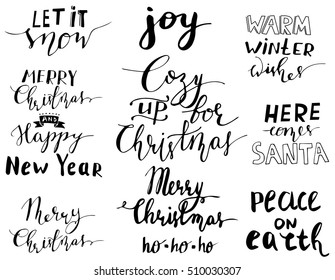 LET iT
snow
MERRY
Christmas
AND
Happy
New Year
Merry
Christmas
joy
Cozy
up for
Christmas
Merry
Christmas
ho•ho•ho
WARM
WiNTER
wishes
HERE
comes
SANTA
peace
on
earth
shutterstock.com · 510030307